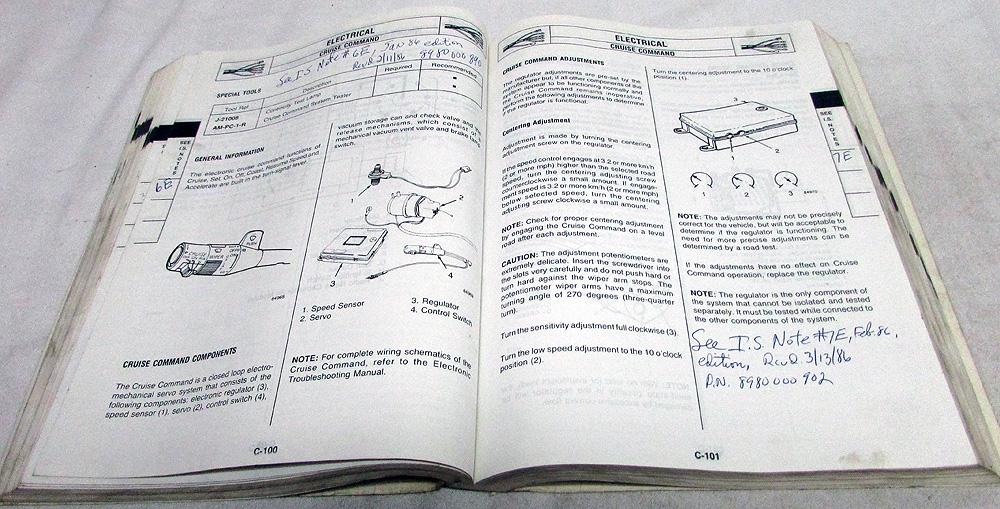 ELECTRICAL
CRUISE COMMAND
See I.S. Note #6E, Jan 86 edition
Rcvd 2/11/86 8980 000 890
SPECIAL TOOLS
Tool Ref.
Description
Required
Recommended
J-21008
Continuity Test Lamp
AM-PC-1-R
Cruise Command System Tester
SEE
I.S.
NOTES
6E
GENERAL INFORMATION
The electronic cruise command functions of
Cruise, Set, On, Off, Coast, Resume Speed and
Accelerate are built in the turn-signal lever.
84968
CRUISE COMMAND COMPONENTS
The Cruise Command is a closed loop electro-
mechanical servo system that consists of the
following components: electronic regulator (3),
speed sensor (1), servo (2), control switch (4),
vacuum storage can and check valve and the
release mechanisms, which consist of a
mechanical vacuum vent valve and brake lamp
switch.
1
2
3
4
84969
1. Speed Sensor
2. Servo
3. Regulator
4. Control Switch
NOTE: For complete wiring schematics of the
Cruise Command, refer to the Electronic
Troubleshooting Manual.
C-100
ELECTRICAL
CRUISE COMMAND
CRUISE COMMAND ADJUSTMENTS
The regulator adjustments are pre-set by the
manufacturer but, if all other components of the
system appear to be functioning normally and
the Cruise Command remains inoperative,
perform the following adjustments to determine
if the regulator is functional.
Centering Adjustment
Adjustment is made by turning the centering
adjustment screw on the regulator.
If the speed control engages at 3.2 or more km/h
(2 or more mph) higher than the selected road
speed, turn the centering adjusting screw
counterclockwise a small amount. If engage-
ment speed is 3.2 or more km/h (2 or more mph)
below selected speed, turn the centering
adjusting screw clockwise a small amount.
NOTE: Check for proper centering adjustment
by engaging the Cruise Command on a level
road after each adjustment.
CAUTION: The adjustment potentiometers are
extremely delicate. Insert the screwdriver into
the slots very carefully and do not push hard or
turn hard against the wiper arm stops. The
potentiometer wiper arms have a maximum
turning angle of 270 degrees (three-quarter
turn).
Turn the sensitivity adjustment full clockwise (3).
Turn the low speed adjustment to the 10 o'clock
position (2).
Turn the centering adjustment to the 10 o'clock
position (1).
3
1
2
1
2
3
84970
NOTE: The adjustments may not be precisely
correct for the vehicle, but will be acceptable to
determine if the regulator is functioning. The
need for more precise adjustments can be
determined by a road test.
If the adjustments have no effect on Cruise
Command operation, replace the regulator.
NOTE: The regulator is the only component of
the system that cannot be isolated and tested
separately. It must be tested while connected to
the other components of the system.
See I.S. Note #7E, Feb. 86,
edition, Rcvd 3/13/86
P.N. 8980 000 902
C-101
SEE
I.S.
NOTES
7E